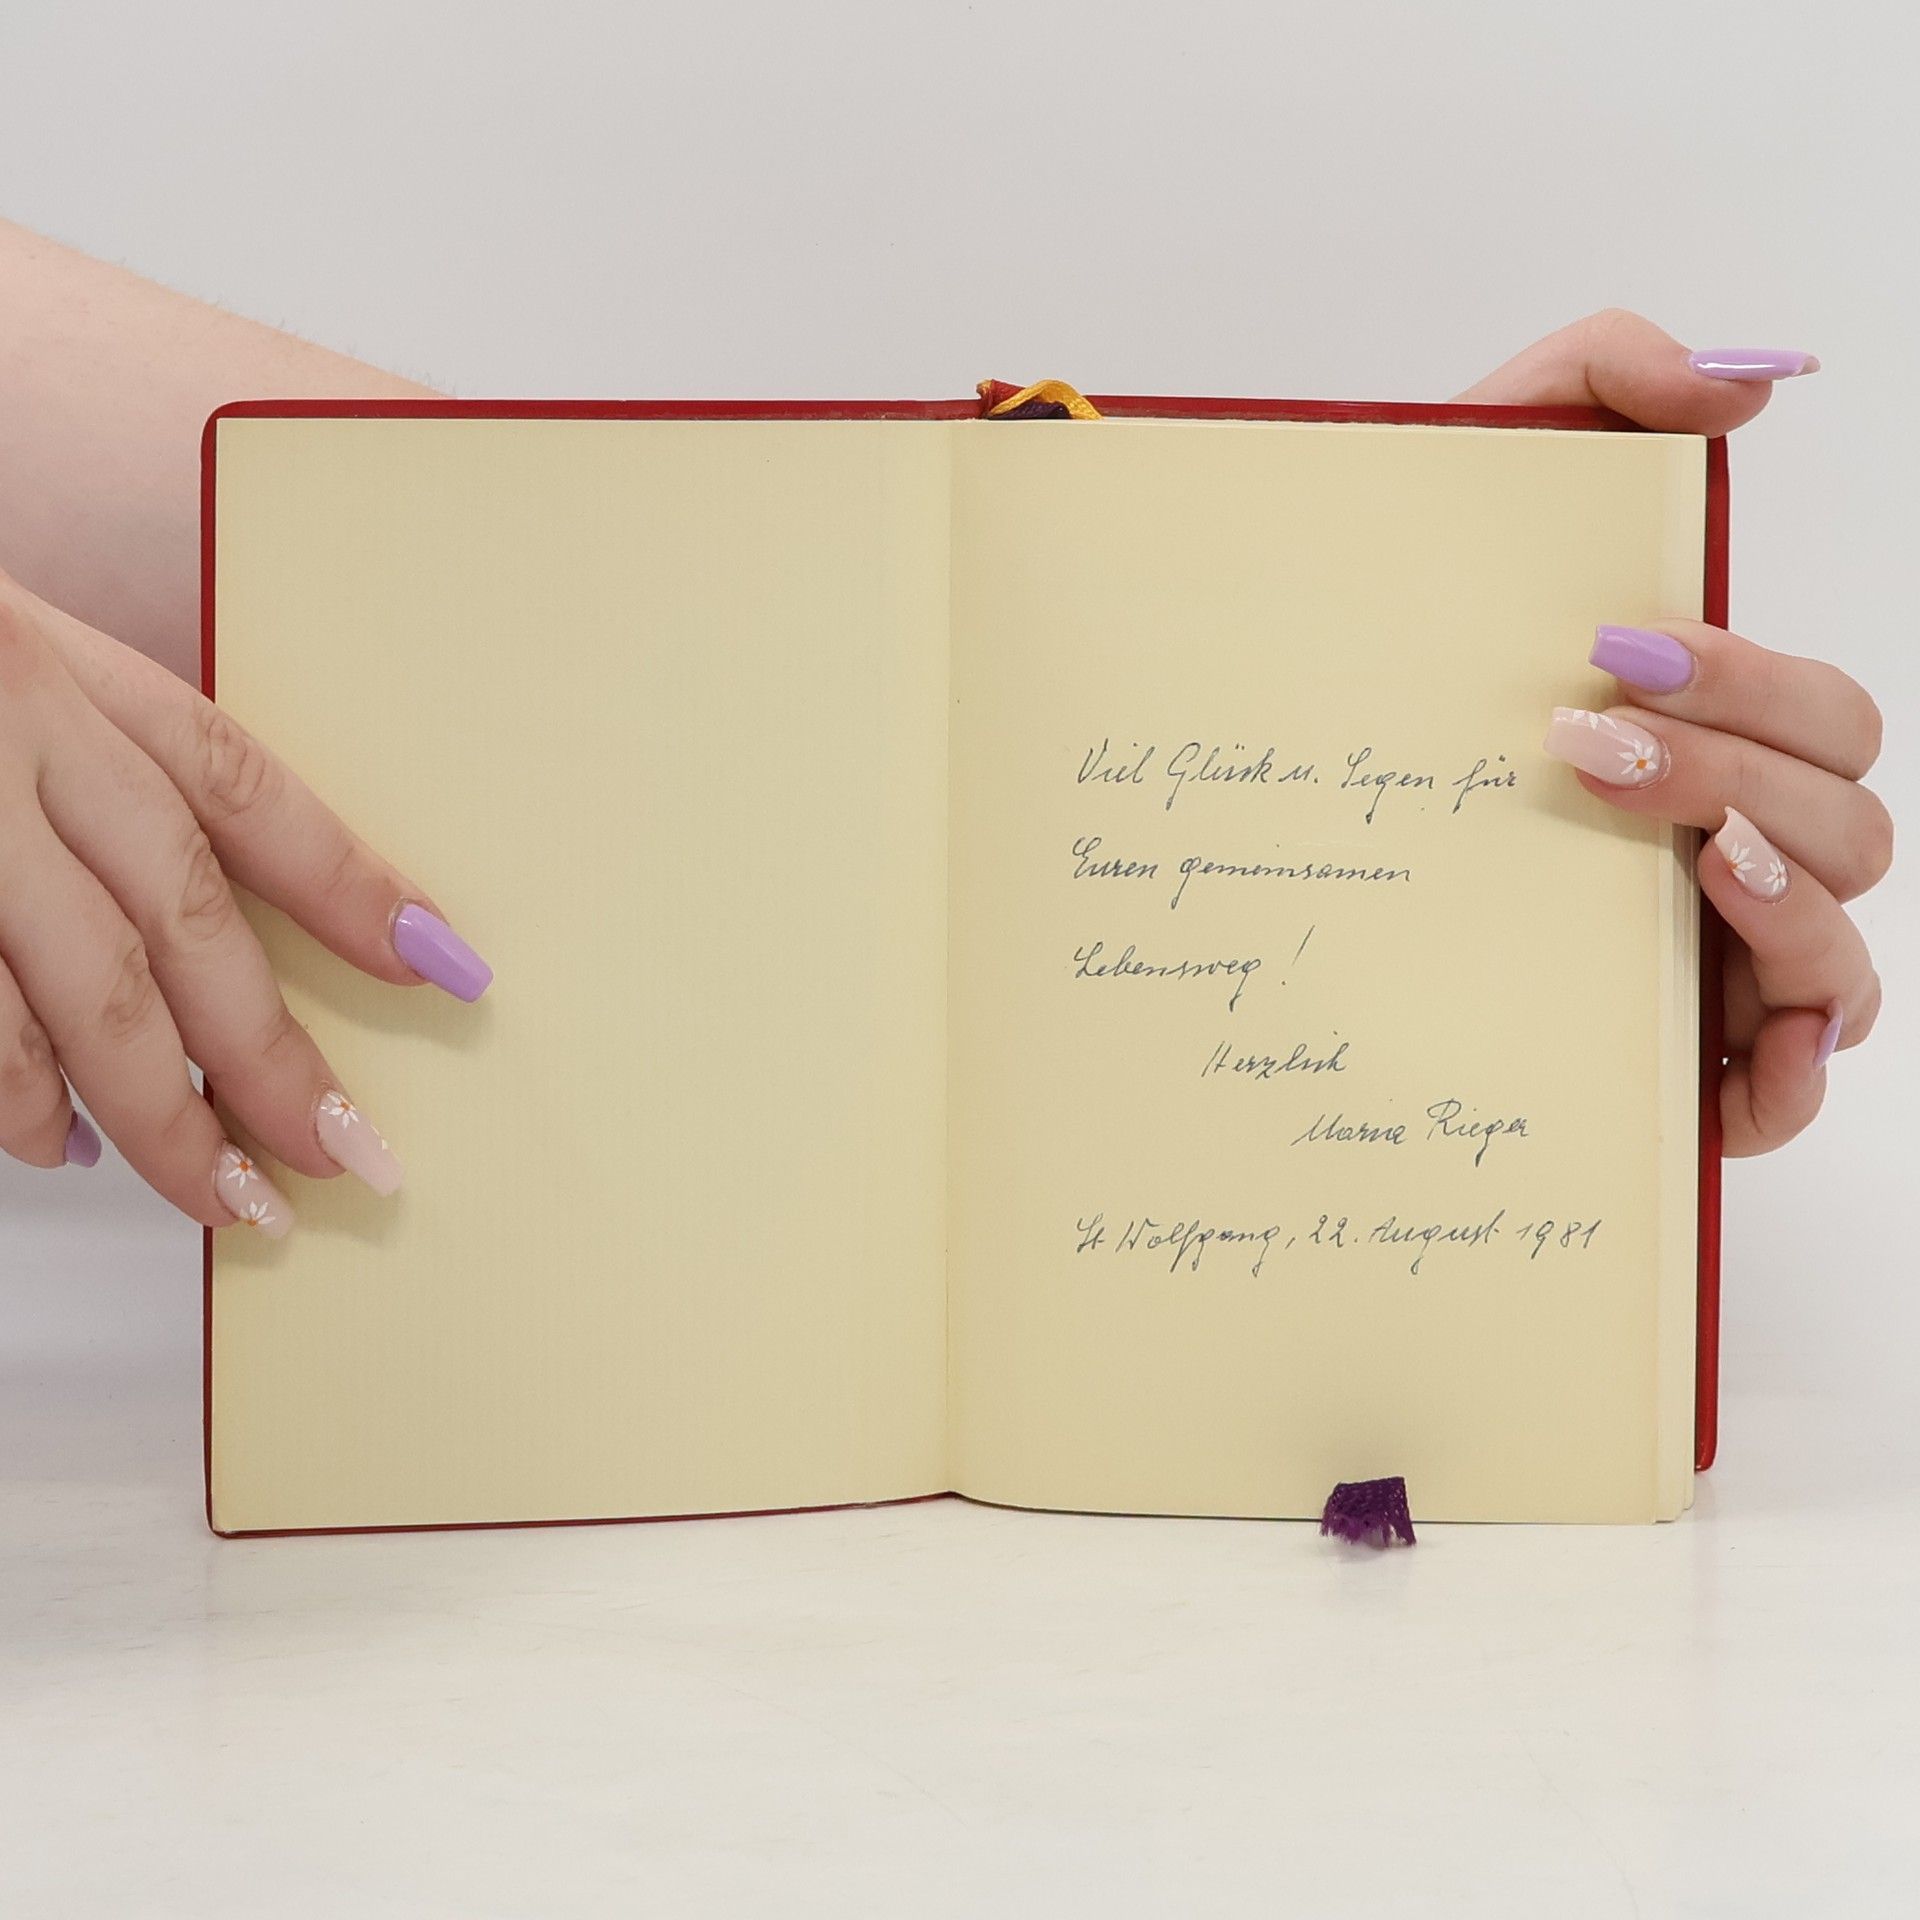 Viel Glück u. Segen für
Euren gemeinsamen
Lebensweg!
Herzlich
Maria Rieger
St Wolfgang, 22. August 1981